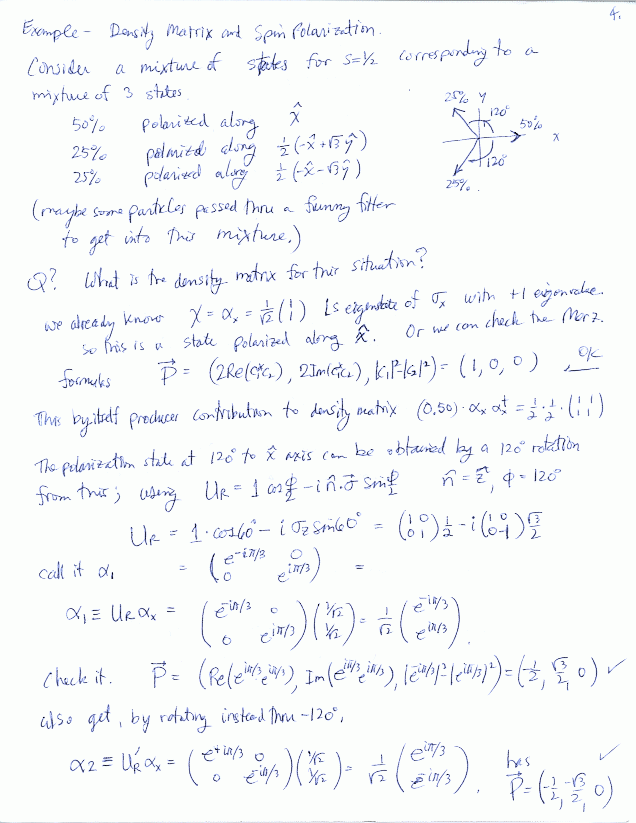 4.
Example - Density Matrix and Spin Polarization.
Consider a mixture of states for s=1/2 corresponding to a
mixture of 3 states
50% polarized along x̂
25% polarized along ½(-x̂+√3ŷ)
25% polarized along ½(-x̂-√3ŷ)
25% y
120°
50% x
120°
25%.
(maybe some particles passed thru a funny filter
to get into this mixture.)
Q? What is the density matrix for this situation?
we already know χ = αₓ = 1/√2 (1 1) is eigenstate of σₓ with +1 eigenvalue.
so this is a state polarized along x̂. Or we can check the Merz.
formula P⃗ = (2Re(c₁*c₂), 2Im(c₁*c₂), |c₁|²-|c₂|²) = (1, 0, 0) OK
This by itself produces contribution to density matrix (0.50)·αₓ αₓ† = ½·½·(1 1 1 1)
The polarization state at 120° to x̂ axis can be obtained by a 120° rotation
from this; using U_R = 1 cos φ/2 - i n̂·σ⃗ sin φ/2 n̂ = ẑ, φ = 120°
U_R = 1·cos60° - i σ_z sin60° = (1 0 0 1) ½ - i (1 0 0 -1) √3/2
call it α₁ = (e^-iπ/3 0 0 e^iπ/3) =
α₁ ≡ U_R αₓ = (e^-iπ/3 0 0 e^iπ/3)(1/√2 1/√2) = 1/√2 (e^-iπ/3 e^iπ/3)
Check it. P⃗ = (Re(e^iπ/3 e^iπ/3), Im(e^iπ/3 e^iπ/3), |e^-iπ/3|²-|e^iπ/3|²) = (-½, √3/2, 0) ✓
also get, by rotating instead thru -120°,
α2 ≡ U_R' αₓ = (e^+iπ/3 0 0 e^-iπ/3)(1/√2 1/√2) = 1/√2 (e^iπ/3 e^-iπ/3). has P⃗ = (-½, -√3/2, 0) ✓